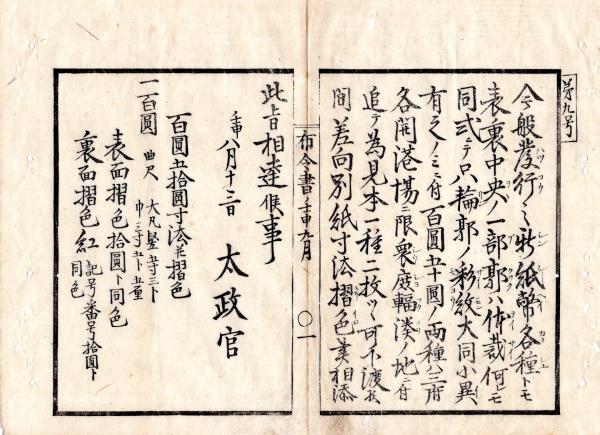 第九号
今般發行ノ新紙幣各種トモ
表裏中央ノ一部郭ハ体裁何レモ
同弐ニテ只輪郭ノ彩紋大同小異
有之ノミニ付百圓五十圓ノ両種ハ三府
各開港場ニ限衆庶輻湊ノ地ニ付
追テ為見本一種二枚ツヽ可下渡候
間差向別紙寸法摺色書相添
布令書 壬申九月
〇一
此旨相達候事
壬申八月十三日 太政官
百圓五拾圓寸法并摺色
一百圓 曲尺 大凡竪四寸三分 巾三寸五分五厘
表面摺色拾圓ト同色
裏面摺色紅 記号番号拾圓ト同色